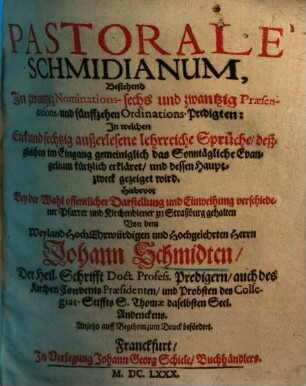 PASTORALE
SCHMIDIANUM,
Bestehend
In zwantzig Nominations- sechs und zwantzig Præsen-
tations- und fünffzehen Ordinations-Predigten:
In welchen
Ein und sechtzig außerlesene lehrreiche Sprüche/ deß-
gleichen im Eingang gemeiniglich das Sonntägliche Evan-
gelium kürtzlich erkläret/ und dessen Haupt-
zweck gezeiget wird.
Hiebevor
Bey der Wahl offentlicher Darstellung und Einweihung verschiede-
ner Pfarrer und Kirchendiener zu Straßburg gehalten
Von dem
Weyland HochEhrwürdigen und Hochgelehrten Herrn
Johann Schmidten/
Der Heil. Schrifft Doct. Profess. Predigern/ auch des
Kirchen Convents Præsidenten/ und Probsten des Colle-
giat-Stiffts S. Thomæ daselbsten Seel.
Andenckens.
Anjetzo auff Begehren zum Druck befördert.
Franckfurt/
In Verlegung Johann Georg Schiele/ Buchhändlers.
M. DC. LXXX.